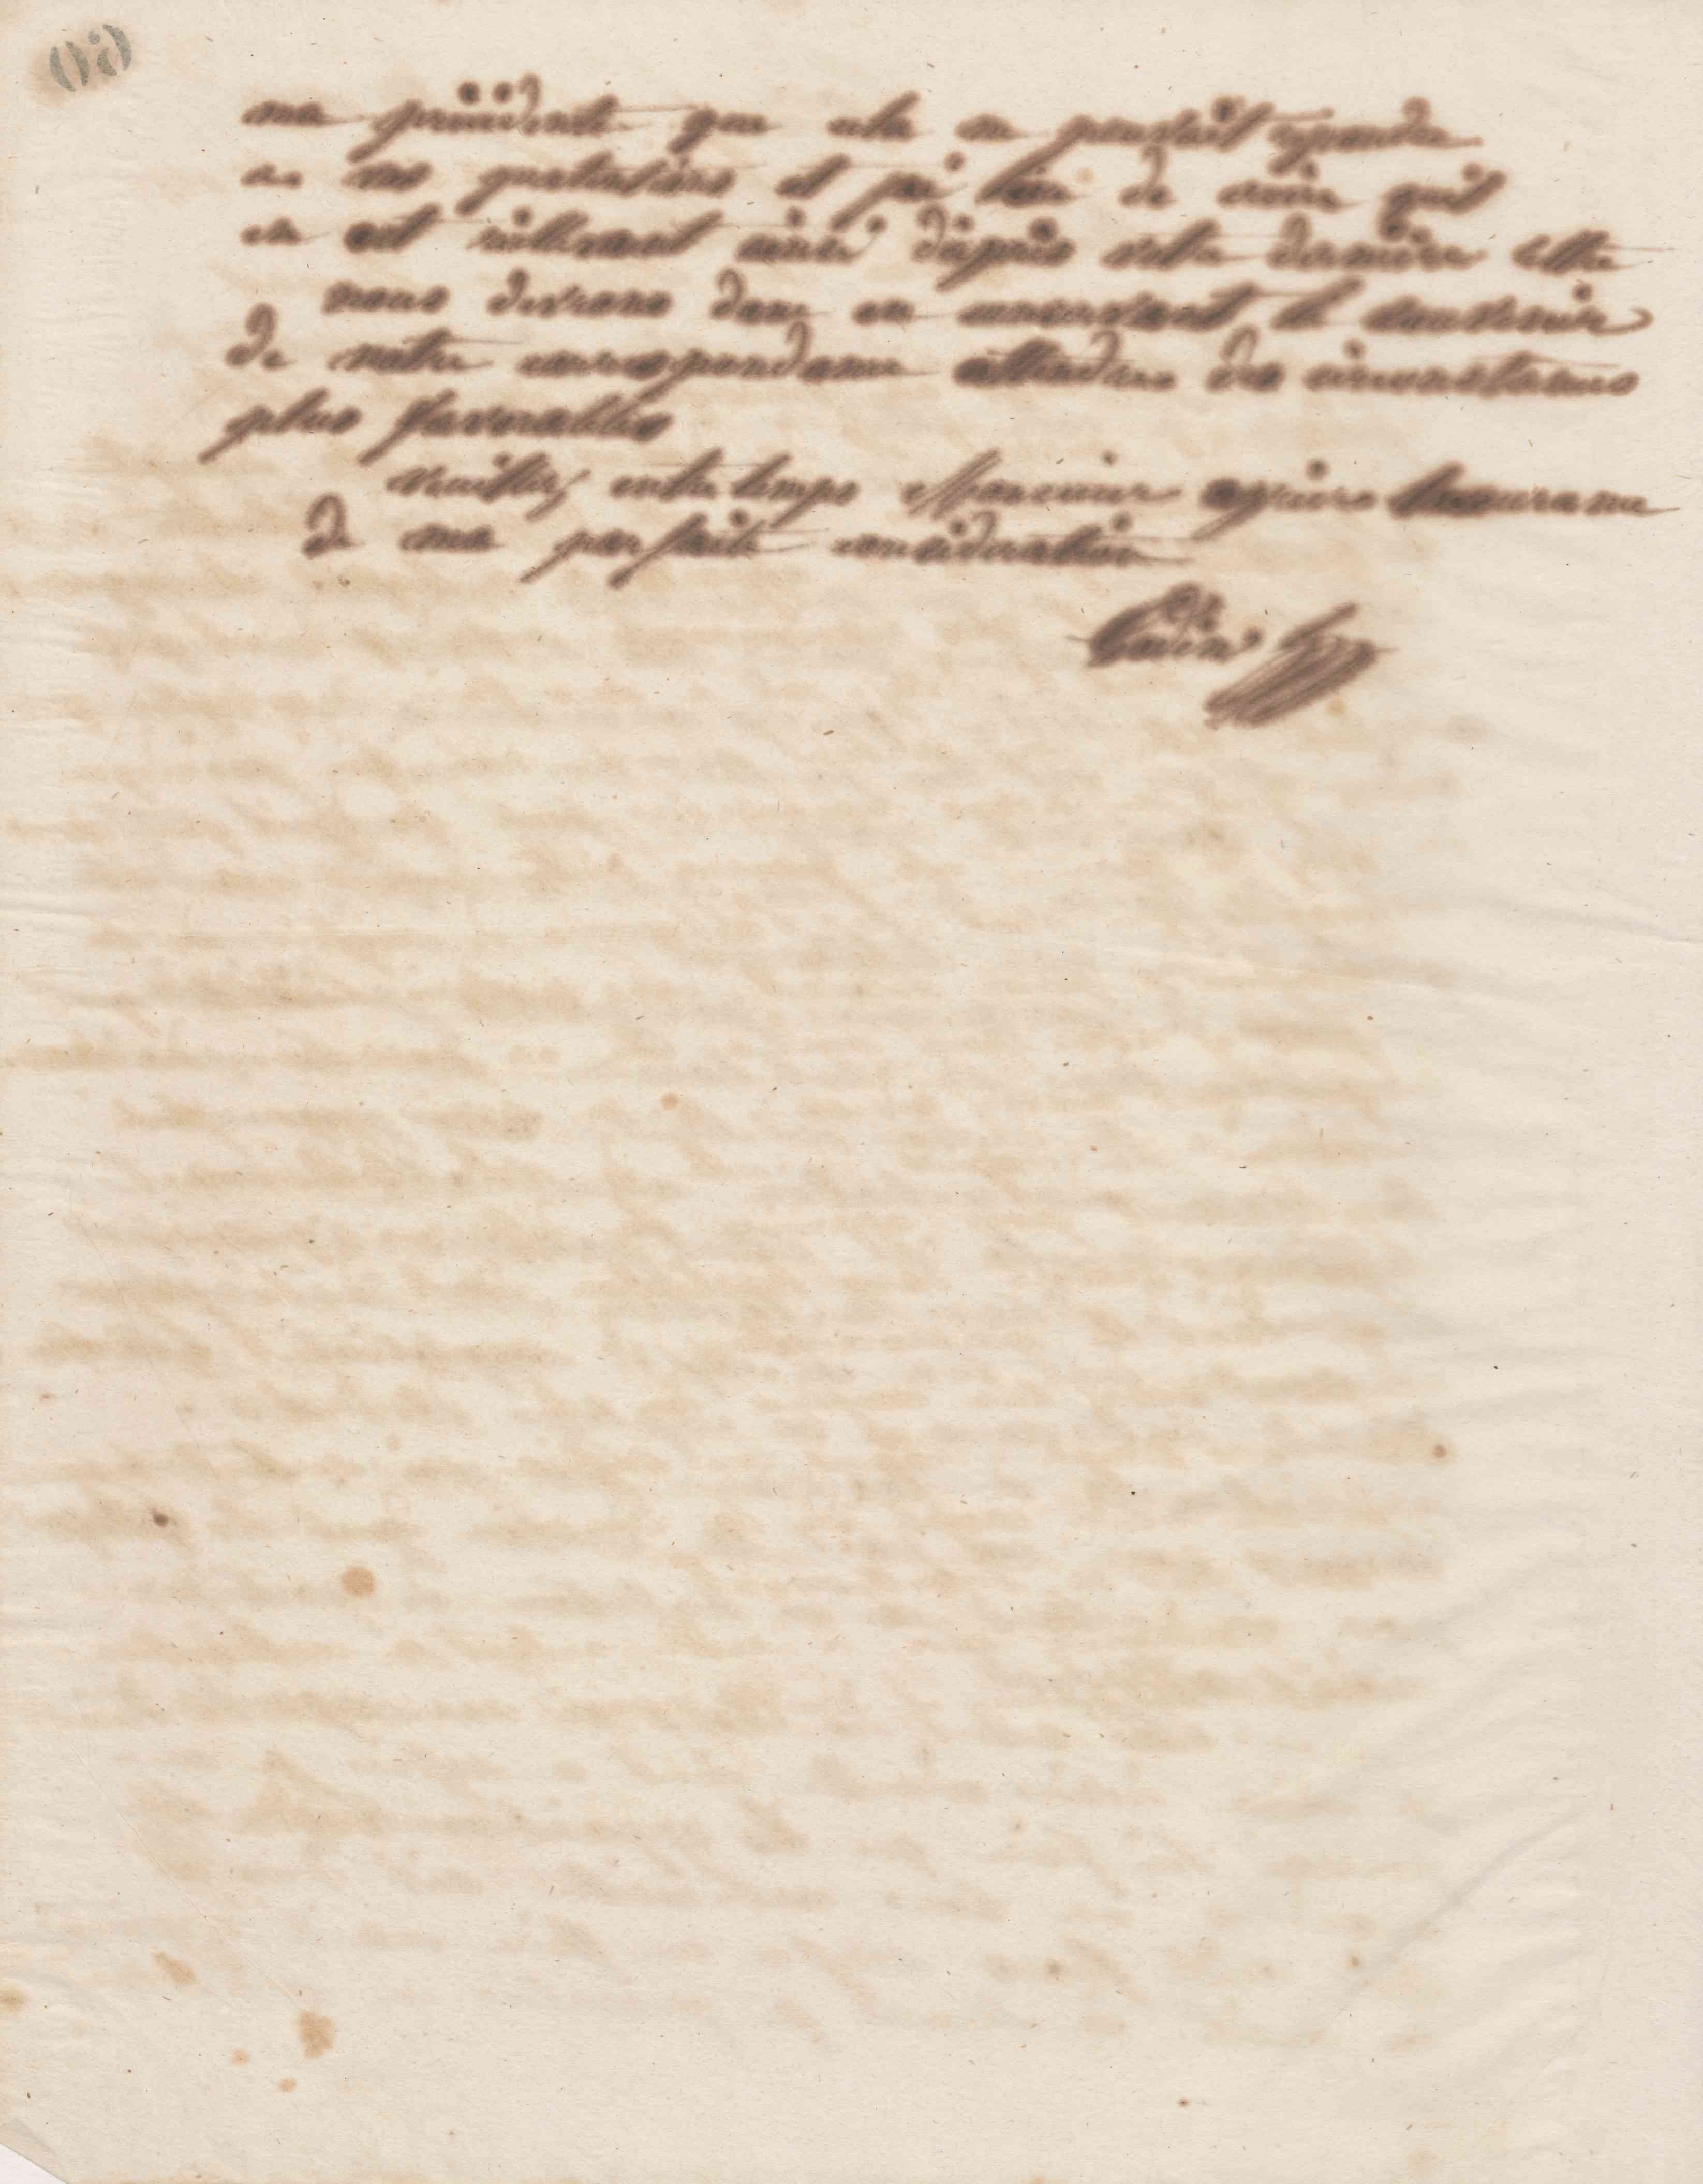 ma précédente que cela ne pourrait répondre
à vos questions et j'ai lieu de croire qu'il
en est réellement ainsi d'après votre dernière lettre
nous devrons donc en conservant le souvenir
de notre correspondance attendre des circonstances
plus favorables
veuillez entre temps Monsieur agréer l'assurance
de ma parfaite considération
Godin